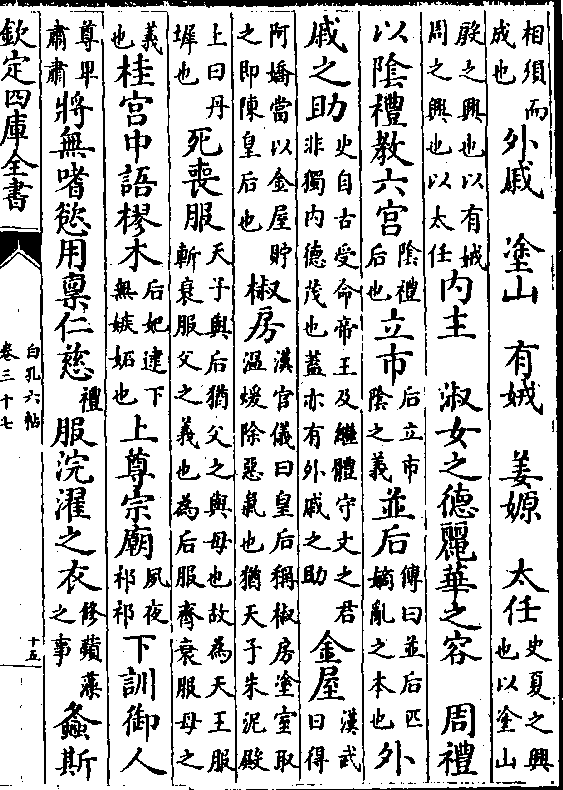 相須而成也外戚　塗山　有娀　姜嫄　太任史夏之興也以塗山
殷之興也以有娀周之興也以太任内主　淑女之德麗華之容　周禮
以陰禮教六宫陰禮后也立市后立市陰之義並后傳曰並后匹嫡亂之本也外
戚之助史自古受命帝王及繼體守文之君非獨内德茂也蓋亦有外戚之助金屋漢武曰得
阿嬌當以金屋貯之即陳皇后也椒房漢官儀曰皇后稱椒房塗室取温煖除惡氣也猶天子朱泥殿
上曰丹墀也死喪服天子與后猶父之與母也故為天王服斬衰服父之義也為后服齊衰服母之
義也桂宫中語樛木后妃逮下無嫉妬也上尊宗廟夙夜祁祁下訓御人
尊卑肅肅將無嗜慾用稟仁慈禮服浣濯之衣修蘋藻之事螽斯
欽定四庫全書
白孔六帖
卷三十七
十五